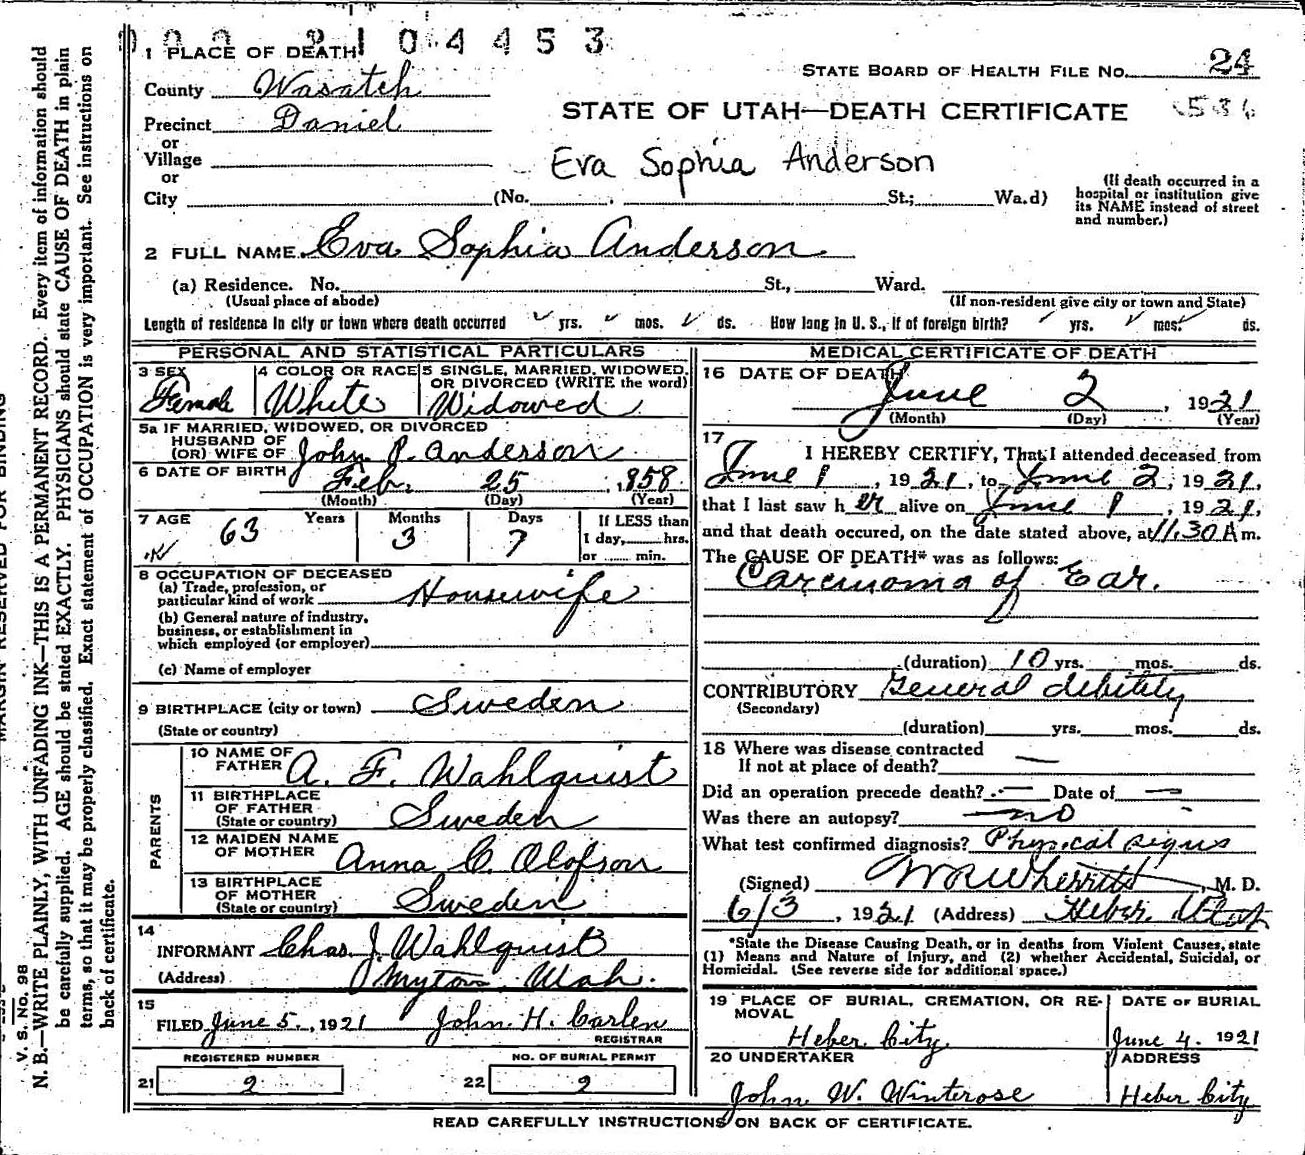 2104453
1 PLACE OF DEATH
STATE BOARD OF HEALTH FILE NO. 24
County Wasatch
STATE OF UTAH—DEATH CERTIFICATE
Precinct Daniel
or
Village
Eva Sophia Anderson
or
City (No. St.; Wa.d)
(If death occurred in a hospital or institution give its NAME instead of street and number.)
2 FULL NAME Eva Sophia Anderson
(a) Residence. No. St., Ward.
(Usual place of abode) (If non-resident give city or town and State)
Length of residence in city or town where death occurred yrs. mos. ds. How long in U. S., if of foreign birth? yrs. mos. ds.
PERSONAL AND STATISTICAL PARTICULARS
3 SEX Female
4 COLOR OR RACE White
5 SINGLE, MARRIED, WIDOWED, OR DIVORCED (WRITE the word) Widowed
5a IF MARRIED, WIDOWED, OR DIVORCED
HUSBAND OF
(OR) WIFE OF John P. Anderson
6 DATE OF BIRTH Feb. 25, 1858
(Month) (Day) (Year)
7 AGE 63 Years 3 Months 7 Days
If LESS than
1 day, hrs.
or min.
8 OCCUPATION OF DECEASED
(a) Trade, profession, or
particular kind of work Housewife
(b) General nature of industry,
business, or establishment in
which employed (or employer)
(c) Name of employer
9 BIRTHPLACE (city or town) Sweden
(State or country)
PARENTS
10 NAME OF
FATHER A. F. Wahlquist
11 BIRTHPLACE
OF FATHER
(State or country) Sweden
12 MAIDEN NAME
OF MOTHER Anna C. Olofson
13 BIRTHPLACE
OF MOTHER
(State or country) Sweden
14
INFORMANT Chas. J. Wahlquist
(Address) Myton, Utah.
15
FILED June 5, 1921 John H. Carlen
REGISTRAR
REGISTERED NUMBER
21 2
NO. OF BURIAL PERMIT
22 2
MEDICAL CERTIFICATE OF DEATH
16 DATE OF DEATH
June 2, 1921
(Month) (Day) (Year)
17
I HEREBY CERTIFY, That I attended deceased from
June 1, 1921, to June 2, 1921,
that I last saw her alive on June 1, 1921,
and that death occured, on the date stated above, at 11.30 A m.
The CAUSE OF DEATH* was as follows:
Carcinoma of Ear.
(duration) 10 yrs. mos. ds.
CONTRIBUTORY General debility
(Secondary)
(duration) yrs. mos. ds.
18 Where was disease contracted
If not at place of death? —
Did an operation precede death? — Date of —
Was there an autopsy? no
What test confirmed diagnosis? Physical signs
(Signed) W R Wherritt, M. D.
6/3, 1921 (Address) Heber Utah
*State the Disease Causing Death, or in deaths from Violent Causes, state
(1) Means and Nature of Injury, and (2) whether Accidental, Suicidal, or
Homicidal. (See reverse side for additional space.)
19 PLACE OF BURIAL, CREMATION, OR RE-
MOVAL
Heber City
DATE OF BURIAL
June 4. 1921
20 UNDERTAKER
John W. Winterose
ADDRESS
Heber City
READ CAREFULLY INSTRUCTIONS ON BACK OF CERTIFICATE.
MARGIN RESERVED FOR BINDING
V. S. NO. 98
N. B.—WRITE PLAINLY, WITH UNFADING INK—THIS IS A PERMANENT RECORD. Every item of information should
be carefully supplied. AGE should be stated EXACTLY. PHYSICIANS should state CAUSE OF DEATH in plain
terms, so that it may be properly classified. Exact statement of OCCUPATION is very important. See instructions on
back of certificate.